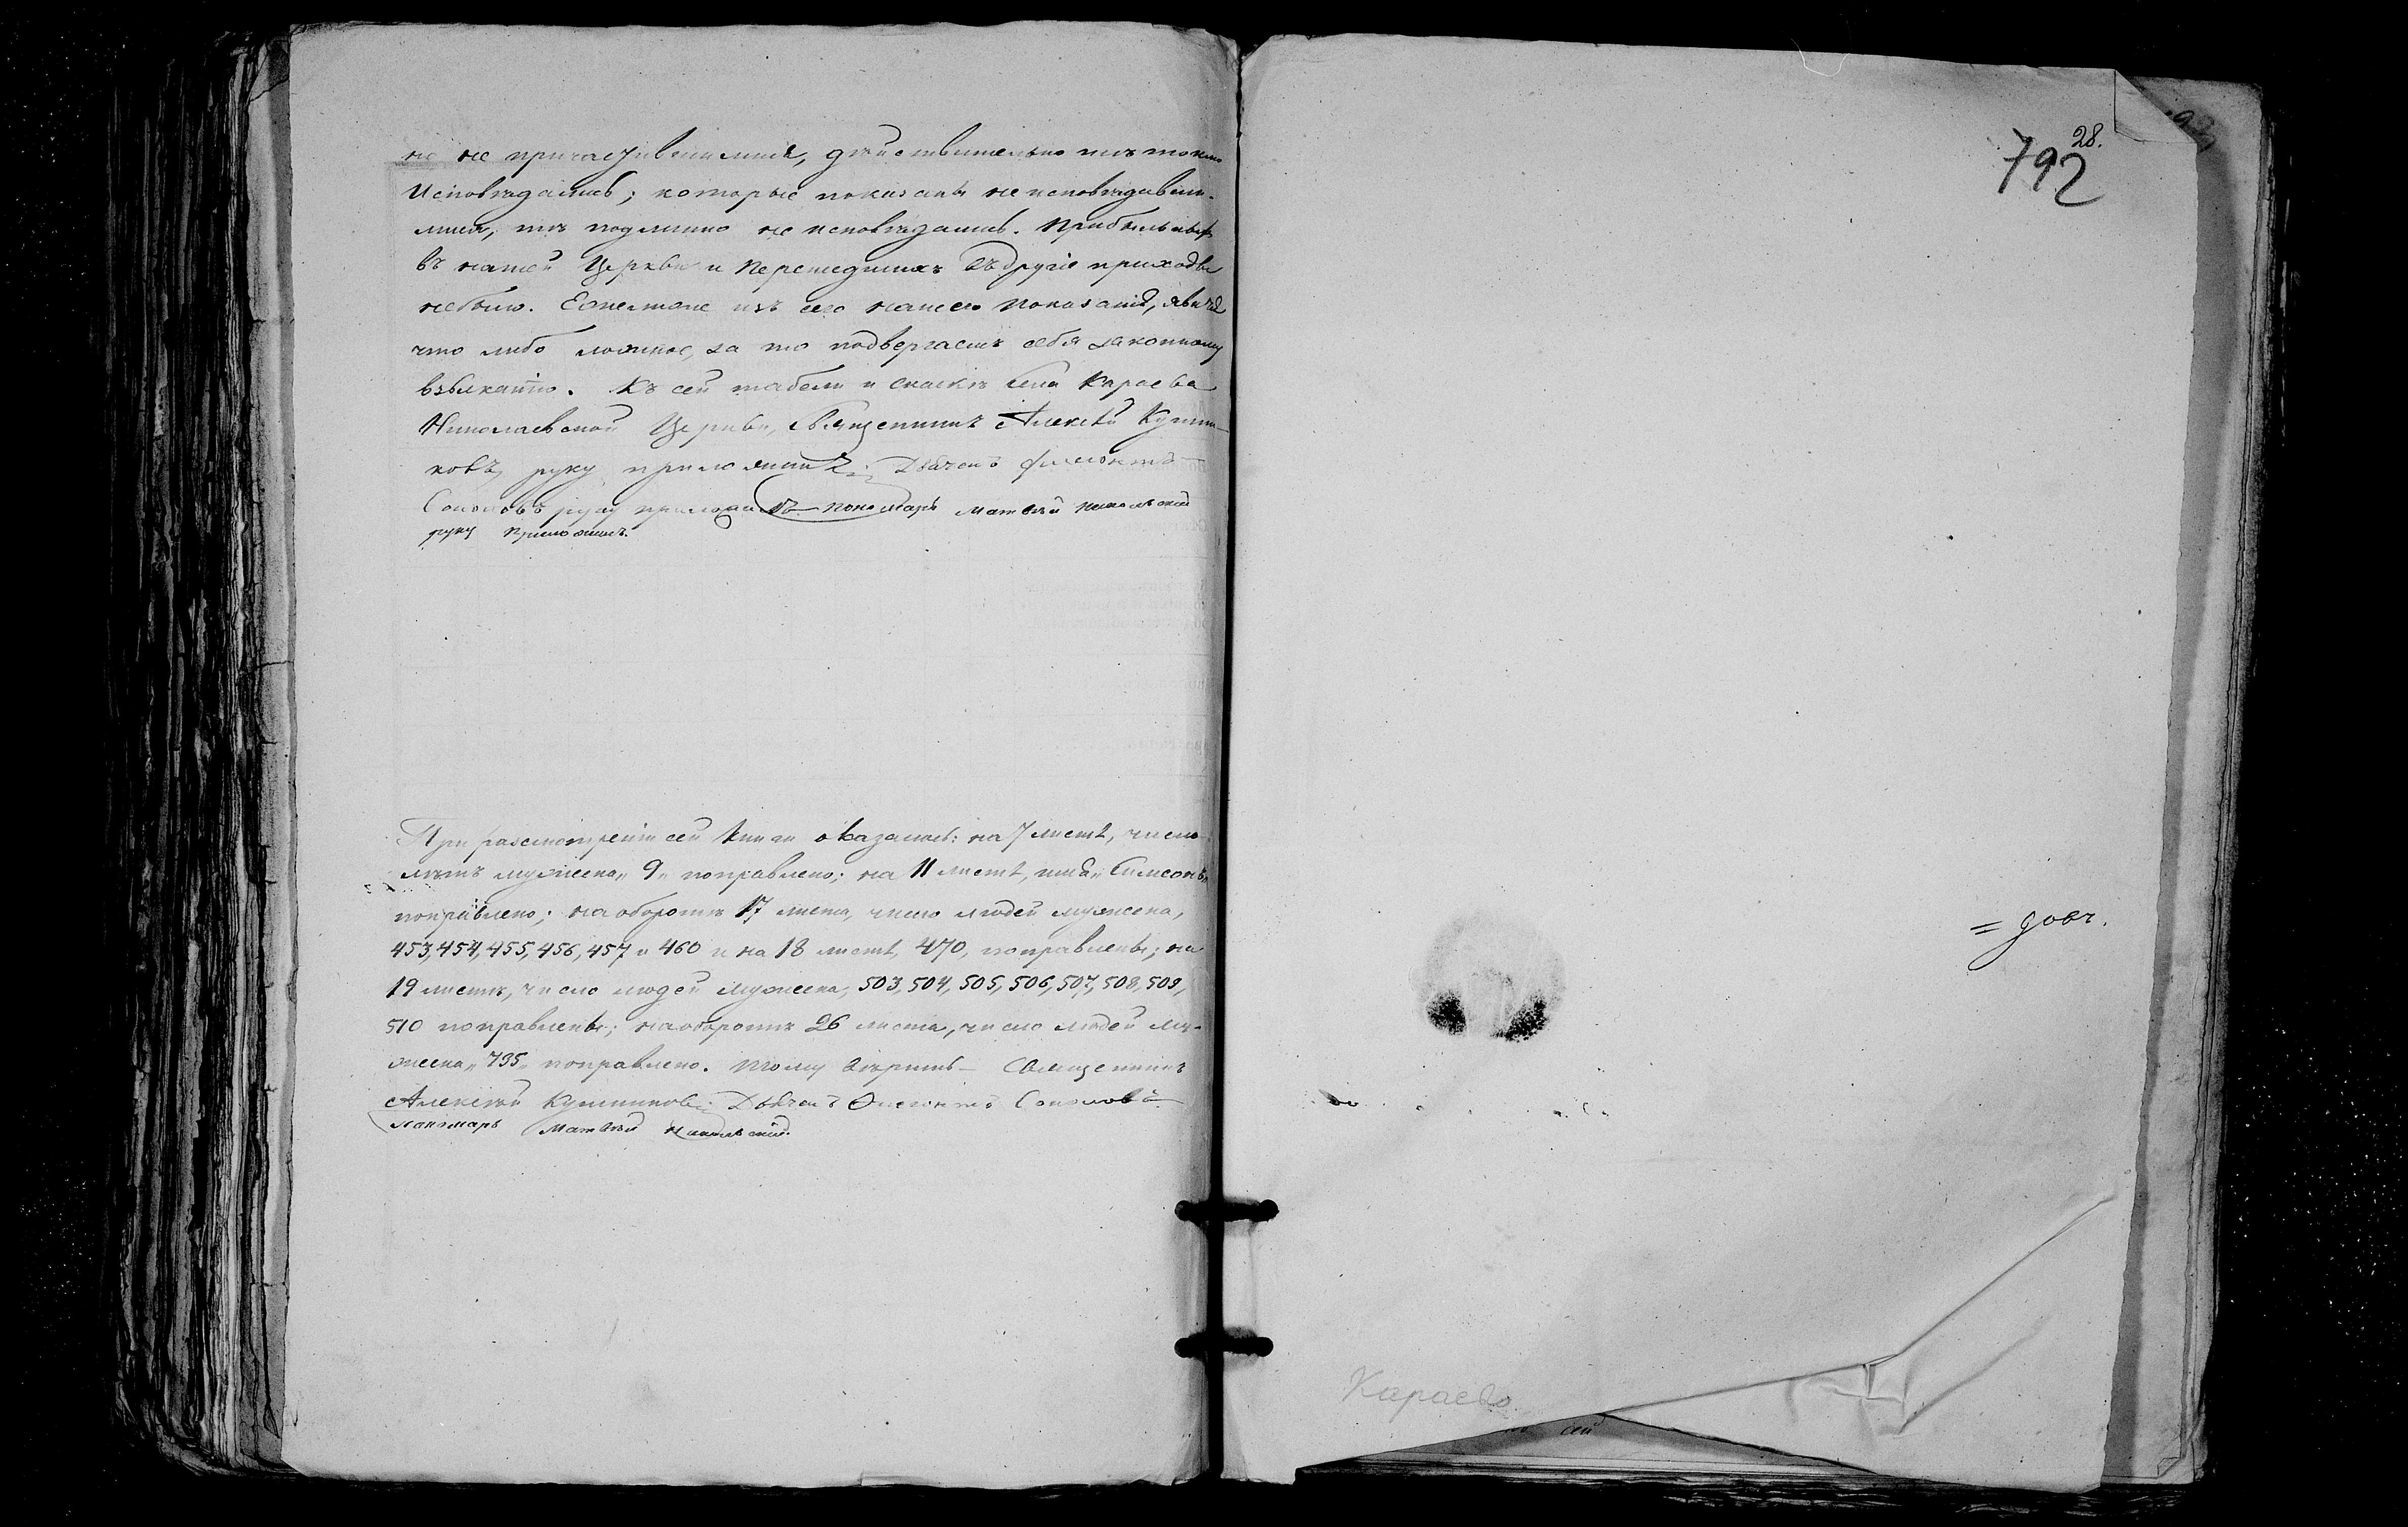 но не причастившимися, дѣйствительно тѣ токмо
исповѣдались; которые показаны не исповѣдавши-
мися, тѣ подлинно не исповѣдались. Прибылыхъ
въ нашей Церкви и перешедшихъ въ другіе приходы
небыло. Ежели же изъ сего нашего показанія, явится
что либо ложное, за то подвергаемъ себя законному
взысканію. Къ сей табели и сказкѣ Села Караева
Николаевской Церкви, Священникъ Алексѣй Кутни-
ковъ, руку приложилъ; Дьячекъ
Соколовъ руку приложилъ Пономарь Матвѣй Никольскій
руку приложилъ.
При разсмотреніи сей книги оказалось: на 7 листѣ, число
лѣтъ мужеска „9„ поправлено; на 11 листѣ, имя „Симеонъ„
поправлено; на оборотѣ 17 листа, число людей мужеска,
453, 454, 455, 456, 457 и 460 и на 18 листѣ, 470, поправлены; на
19 листѣ, число людей мужеска, 503, 504, 505, 506, 507, 508, 509,
510 поправлены; на оборотѣ 26 листа, число людей му-
жеска „735„ поправлено. Тому вѣрить – Священникъ
Алексѣй Дьячекъ Соколовъ
Пономарь Матвѣй Никольскій.
28.
792
Караево
сей